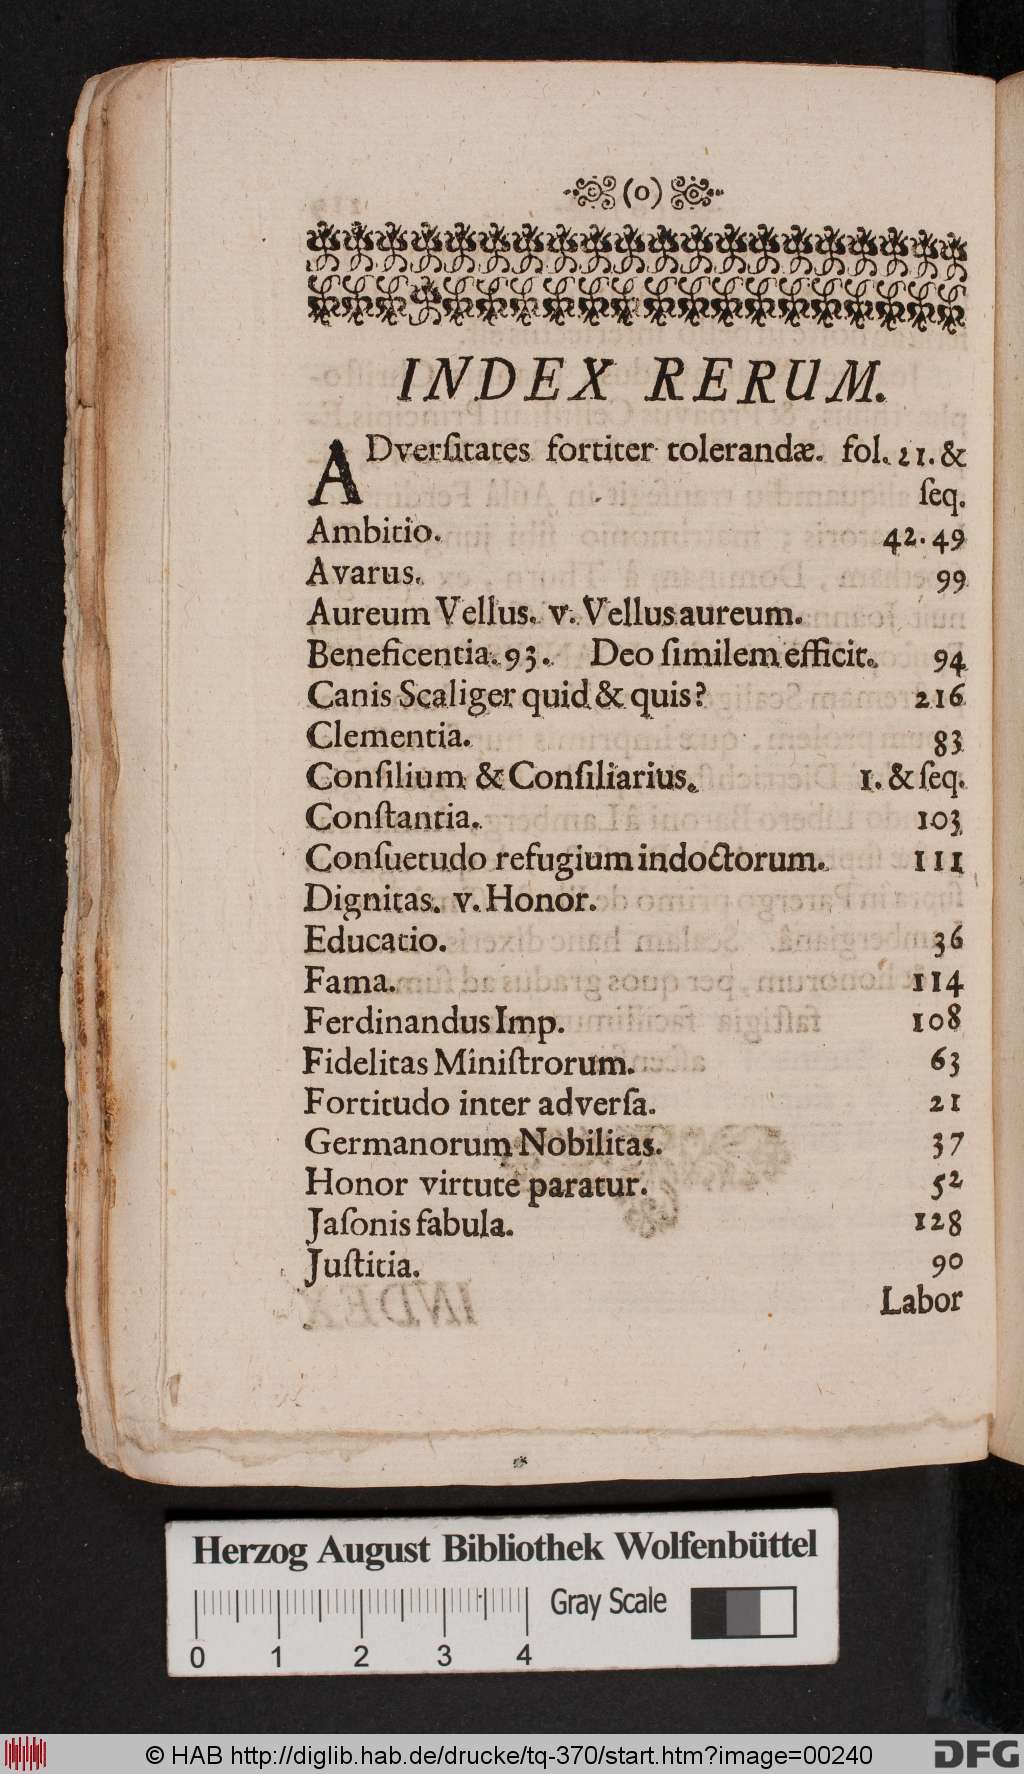 (o)
INDEX RERUM.
ADverſitates fortiter tolerandæ. fol. 21. &
ſeq.
Ambitio. 42. 49
Avarus. 99
Aureum Vellus. v. Vellus aureum.
Beneficentia. 93. Deo ſimilem efficit. 94
Canis Scaliger quid & quis? 216
Clementia. 83
Conſilium & Conſiliarius. 1. & ſeq.
Conſtantia. 103
Conſuetudo refugium indoctorum. 111
Dignitas. v. Honor.
Educatio. 36
Fama. 114
Ferdinandus Imp. 108
Fidelitas Miniſtrorum. 63
Fortitudo inter adverſa. 21
Germanorum Nobilitas. 37
Honor virtute paratur. 52
Jaſonis fabula. 128
Juſtitia. 90
Labor
Herzog August Bibliothek Wolfenbüttel
Gray Scale
0 1 2 3 4
© HAB http://diglib.hab.de/drucke/tq-370/start.htm?image=00240
DFG